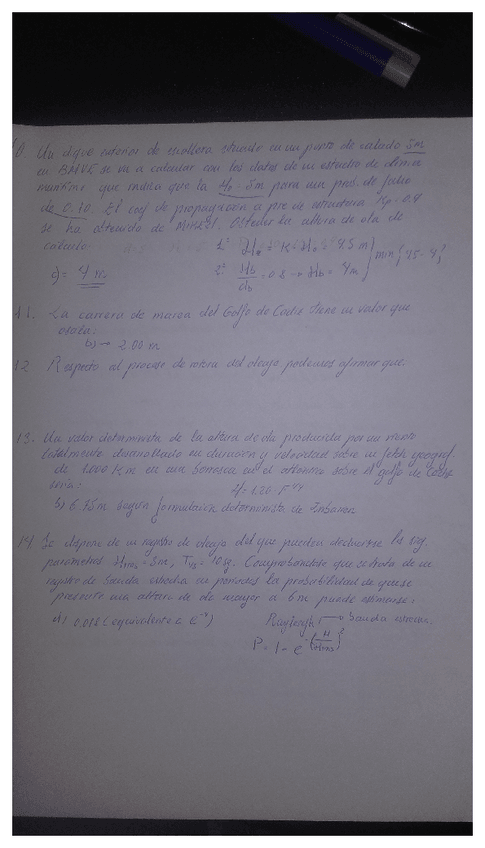 0. Un dique exterior de escollera situado en un punto de calado 5m
en BMVE se va a calcular con los datos de un estudio de clima
marítimo que indica que la H0 = 5m para una prob. de fallo
de 0.10. El coef de propagación a pie de estructura Kp = 0.9
se ha obtenido de . Obtener la altura de ola de
cálculo
1º = K · H0 = 4.5 m
min {4.5 - 4}
2º Hb/db = 0.8 → Hb = 4m
d) = 4 m.
11. La carrera de marea del Golfo de Cadiz tiene un valor que
oscila:
b) → 2.00 m
12. Respecto al proceso de rotura del oleaje podemos afirmar que:
13. Un valor determinista de la altura de ola producida por un viento
totalmente desarrollado en duración y velocidad sobre un fetch geograf.
de 1.000 Km en una borrasca en el atlantico sobre el golfo de Cadiz
seria:
b) 6.75m según formulación determinista de Iribarren
14. Se dispone de un registro de oleaje del que pueden deducirse los sig.
parámetros Hrms = 3m, = 10sg. Comprobandose que se trata de un
registro de banda estrecha la probabilidad de que se
presente una altura de ola mayor a 6m puede estimarse:
0.018 (equivalente a e⁻⁴)
Rayleigh → banda estrecha.
P = 1 - e^-(H/Hrms)²